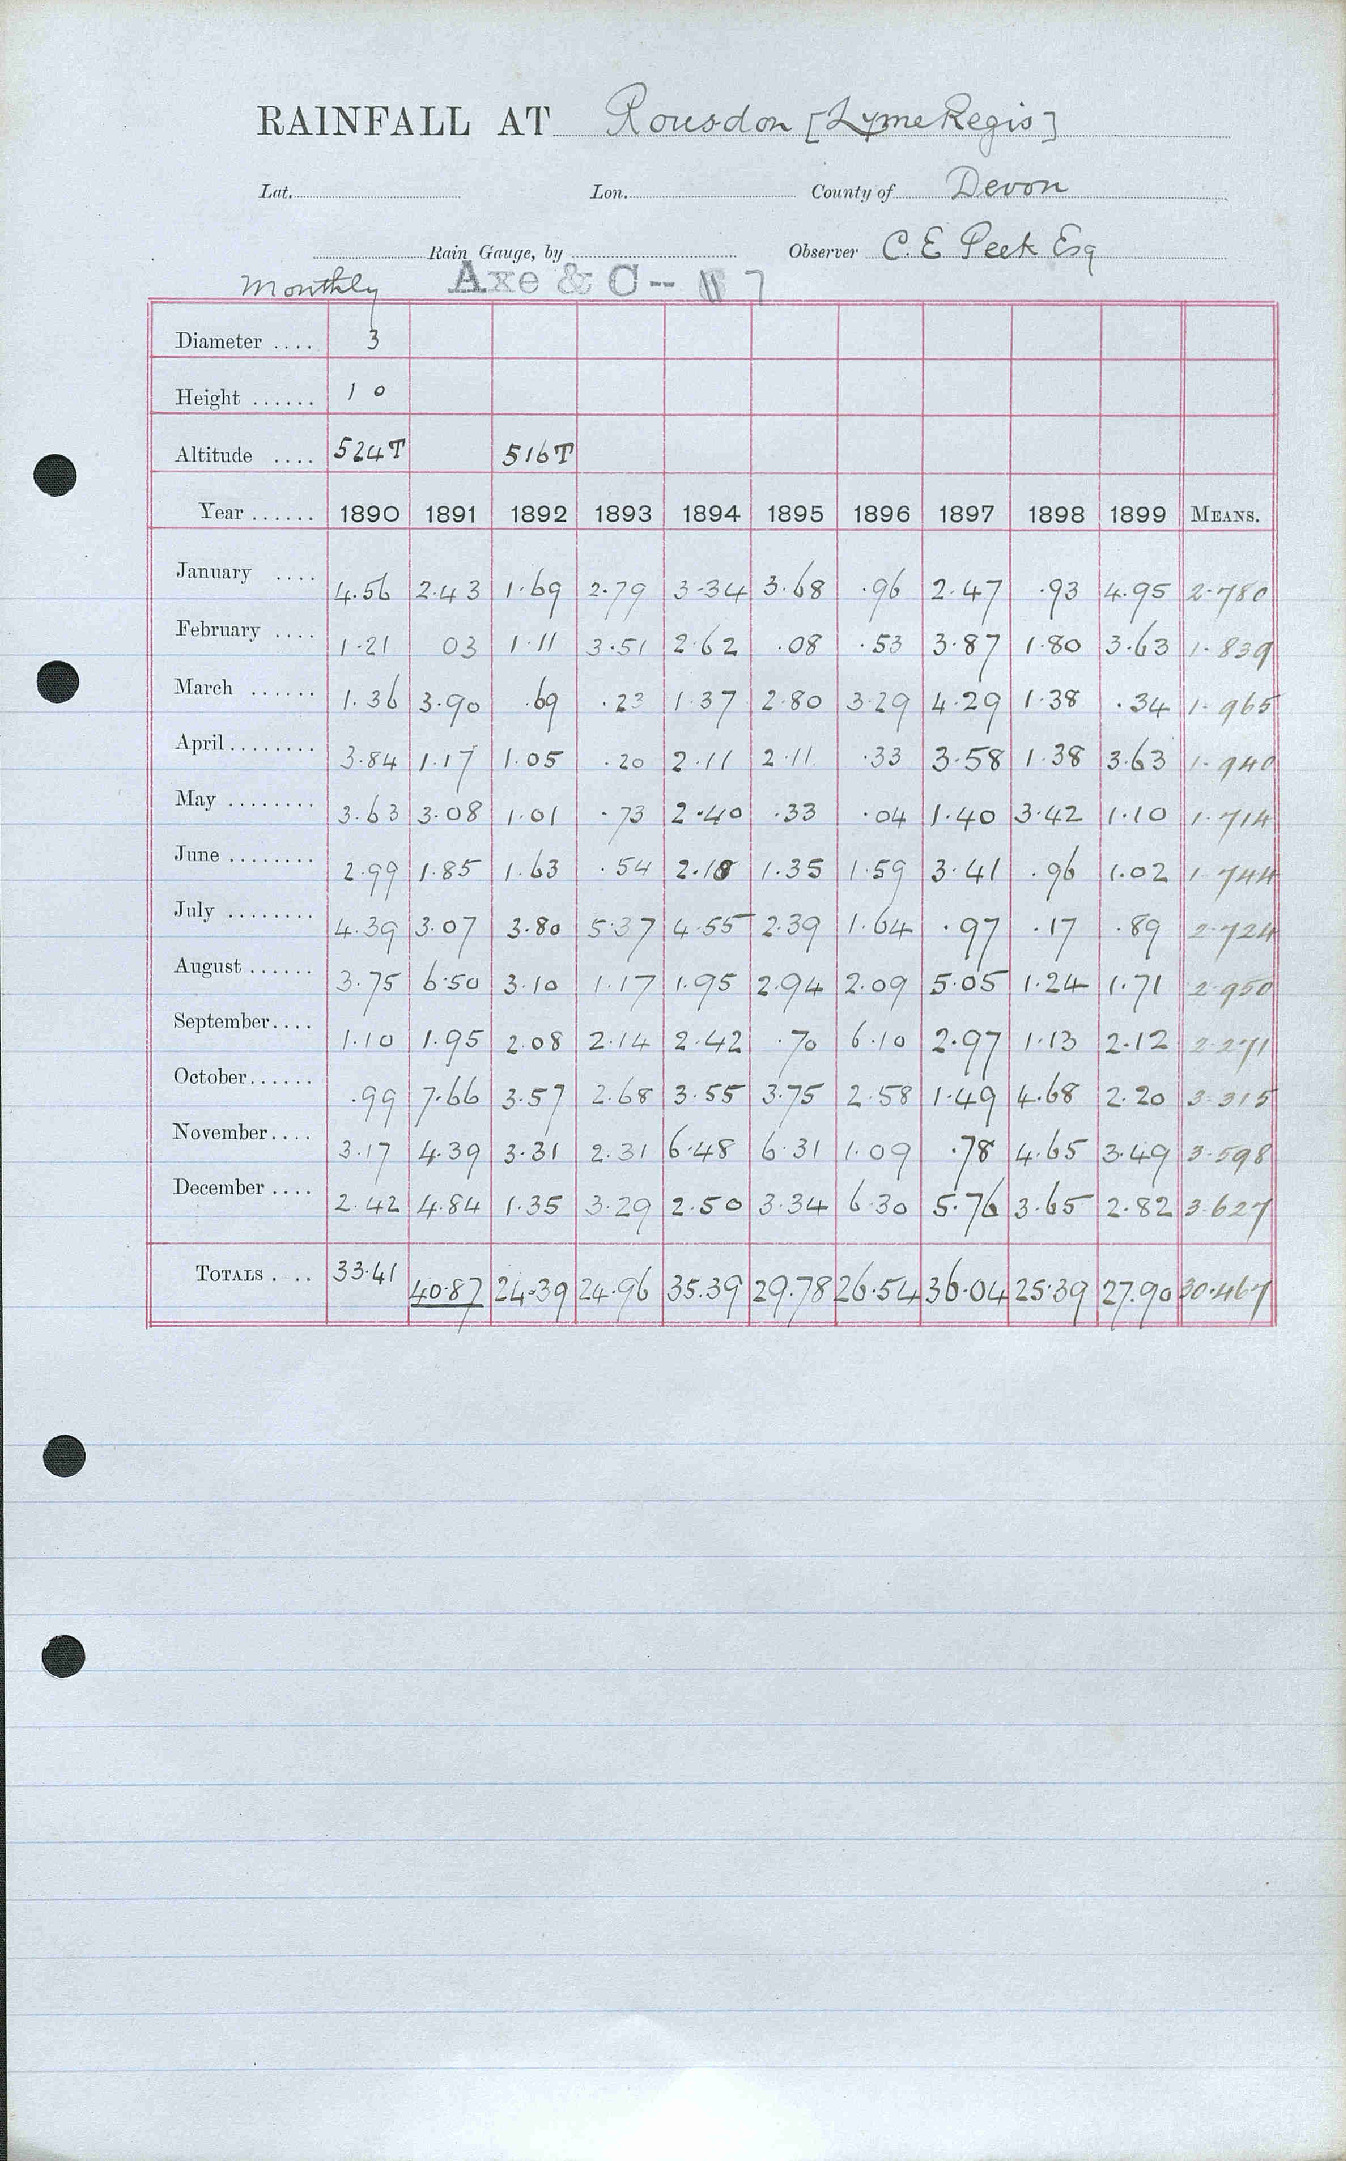 RAINFALL AT Rousdon [Lyme Regis]
Lat. Lon. County of Devon
Rain Gauge, by Observer C. E. Peek Esq
Monthly Axe & C-- 7
Diameter .... 3
Height ...... 1 0
Altitude .... 524T 516T
Year ...... 1890 1891 1892 1893 1894 1895 1896 1897 1898 1899 MEANS.
January .... 4.56 2.43 1.69 2.79 3.34 3.68 .96 2.47 .93 4.95 2.780
February .... 1.21 03 1.11 3.51 2.62 .08 .53 3.87 1.80 3.63 1.839
March ...... 1.36 3.90 .69 .23 1.37 2.80 3.29 4.29 1.38 .34 1.965
April ........ 3.84 1.17 1.05 .20 2.11 2.11 .33 3.58 1.38 3.63 1.940
May ........ 3.63 3.08 1.01 .73 2.40 .33 .04 1.40 3.42 1.10 1.714
June ........ 2.99 1.85 1.63 .54 2.10 1.35 1.59 3.41 .96 1.02 1.744
July ........ 4.39 3.07 3.80 5.37 4.55 2.39 1.64 .97 .17 .89 2.724
August ...... 3.75 6.50 3.10 1.17 1.95 2.94 2.09 5.05 1.24 1.71 2.950
September .... 1.10 1.95 2.08 2.14 2.42 .70 6.10 2.97 1.13 2.12 2.271
October ...... .99 7.66 3.57 2.68 3.55 3.75 2.58 1.49 4.68 2.20 3.315
November .... 3.17 4.39 3.31 2.31 6.48 6.31 1.09 .78 4.65 3.49 3.598
December .... 2.42 4.84 1.35 3.29 2.50 3.34 6.30 5.76 3.65 2.82 3.627
TOTALS .... 33.41 40.87 24.39 24.96 35.39 29.78 26.54 36.04 25.39 27.90 30.467